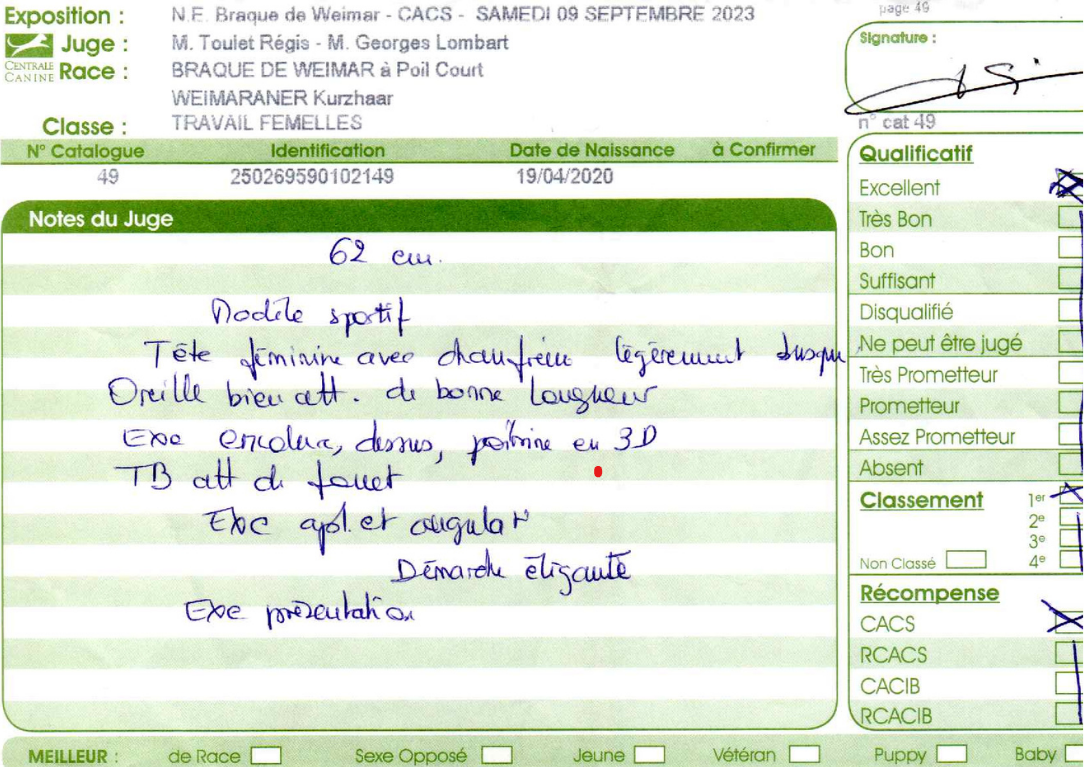 Exposition : N.E. Braque de Weimar - CACS - SAMEDI 09 SEPTEMBRE 2023
page 49
Juge : M. Toulet Régis - M. Georges Lombart
Signature :
CENTRALE CANINE
Race : BRAQUE DE WEIMAR à Poil Court
WEIMARANER Kurzhaar
Classe : TRAVAIL FEMELLES
n° cat 49
N° Catalogue Identification Date de Naissance à Confirmer
49 250269590102149 19/04/2020
Notes du Juge
62 cm.
Modèle sportif
Tête féminine avec chanfrein légèrement busqu
Oreille bien att. de bonne longueur
Exc encolure, dessus, poitrine en 3D
TB att de fouet
Exc apl. et angulat°
Démarche élégante
Exc présentation
Qualificatif
Excellent
Très Bon
Bon
Suffisant
Disqualifié
Ne peut être jugé
Très Prometteur
Prometteur
Assez Prometteur
Absent
Classement 1er
2e
3e
Non Classé 4e
Récompense
CACS
RCACS
CACIB
RCACIB
MEILLEUR : de Race Sexe Opposé Jeune Vétéran Puppy Baby